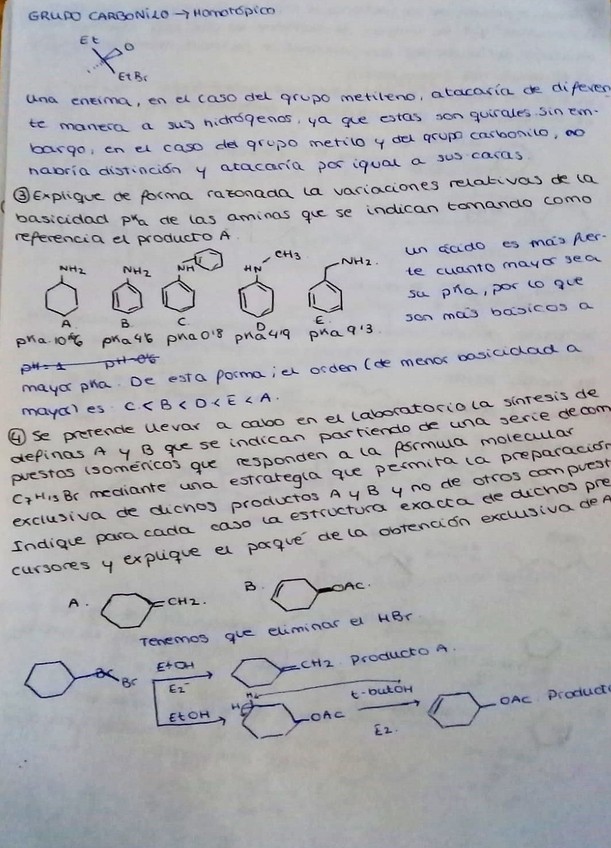 GRUPO CARBONILO → Homotópico
Et
O
EtBr
Una enzima, en el caso del grupo metileno, atacaría de diferen
te manera a sus hidrógenos, ya que estas son quirales. Sin em-
bargo, en el caso del grupo metilo y del grupo carbonilo, no
habría distinción y atacaría por igual a sus caras.
③ Explique de forma razonada la variaciones relativas de la
basicidad pKa de las aminas que se indican tomando como
referencia el producto A.
NH2 NH2 NH HN CH3 NH2.
A B. C. D E.
pKa 10'6 pKa 4'6 pKa 0'8 pKa 4'9 pKa 9'3.
un ácido es más fler-
te cuanto mayor sea
su pKa, por lo que
son más básicos a
mayor pKa. De esta forma; el orden (de menor basicidad a
mayor) es: C < B < D < E < A.
④ Se pretende llevar a cabo en el laboratorio la síntesis de
definas A y B que se indican partiendo de una serie de com
puestos isoméricos que responden a la fórmula molecular
C7H13Br mediante una estrategia que permita la preparación
exclusiva de dichos productos A y B y no de otros compuest
Indique para cada caso la estructura exacta de dichos pre
cursores y explique el porqué de la obtención exclusiva de A
A. =CH2. B. OAc.
Tenemos que eliminar el HBr
Br EtOH E2 =CH2 Producto A.
EtOH OAc t-butOH E2. OAc Product